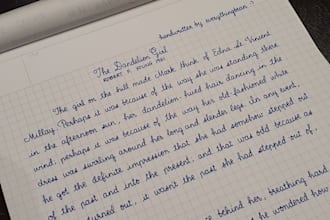 handwritten by everythingbean :)
The Dandelion Girl
ROBERT F. YOUNG 1961
The girl on the hill made Mark think of Edna St. Vincent
Millay. Perhaps it was because of the way she was standing there
in the afternoon sun, her dandelion-hued hair dancing in the
wind; perhaps it was because of the way her old-fashioned white
dress was swirling around her long and slender legs. In any event,
he got the definite impression that she had somehow stepped out
of the past and into the present; and that was odd because as
turned out, it wasn't the past she had stepped out of,
behind her, breathing hard
he wondered how